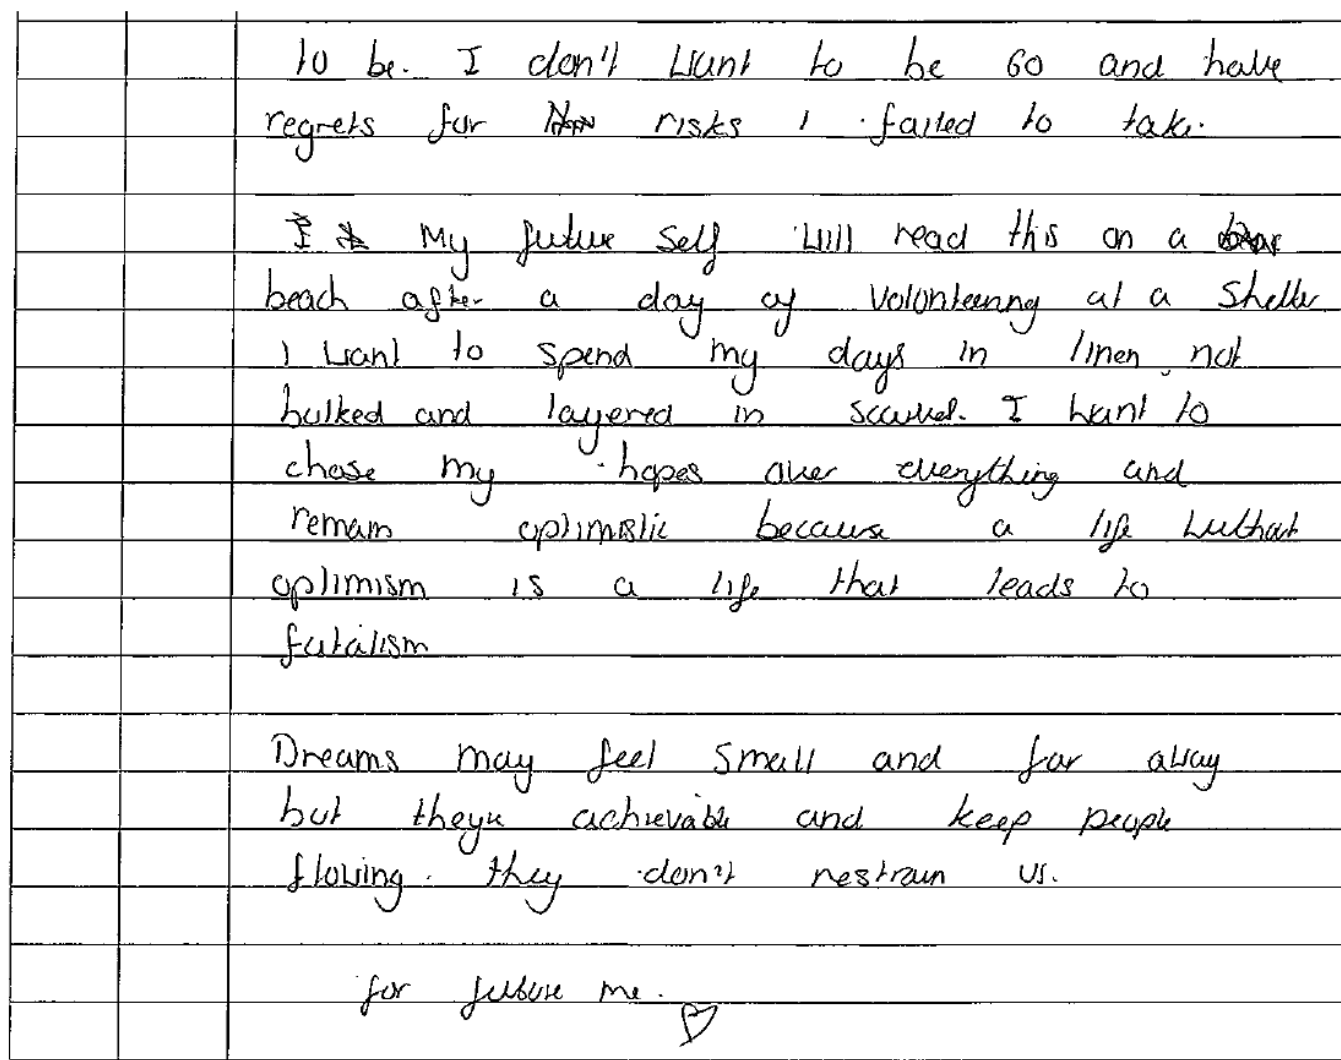 to be. I don't want to be 60 and have
regrets for risks I failed to take.
My future self will read this on a
beach after a day of volunteering at a Shelter
I want to spend my days in linen, not
bulked and layered in
I want to
chase my hopes over everything and
remain optimistic because a life without
optimism is a life that leads to
fatalism
Dreams may feel small and far away
but theyre achievable and keep people
flowing. they don't restrain us.
for future me. ♡